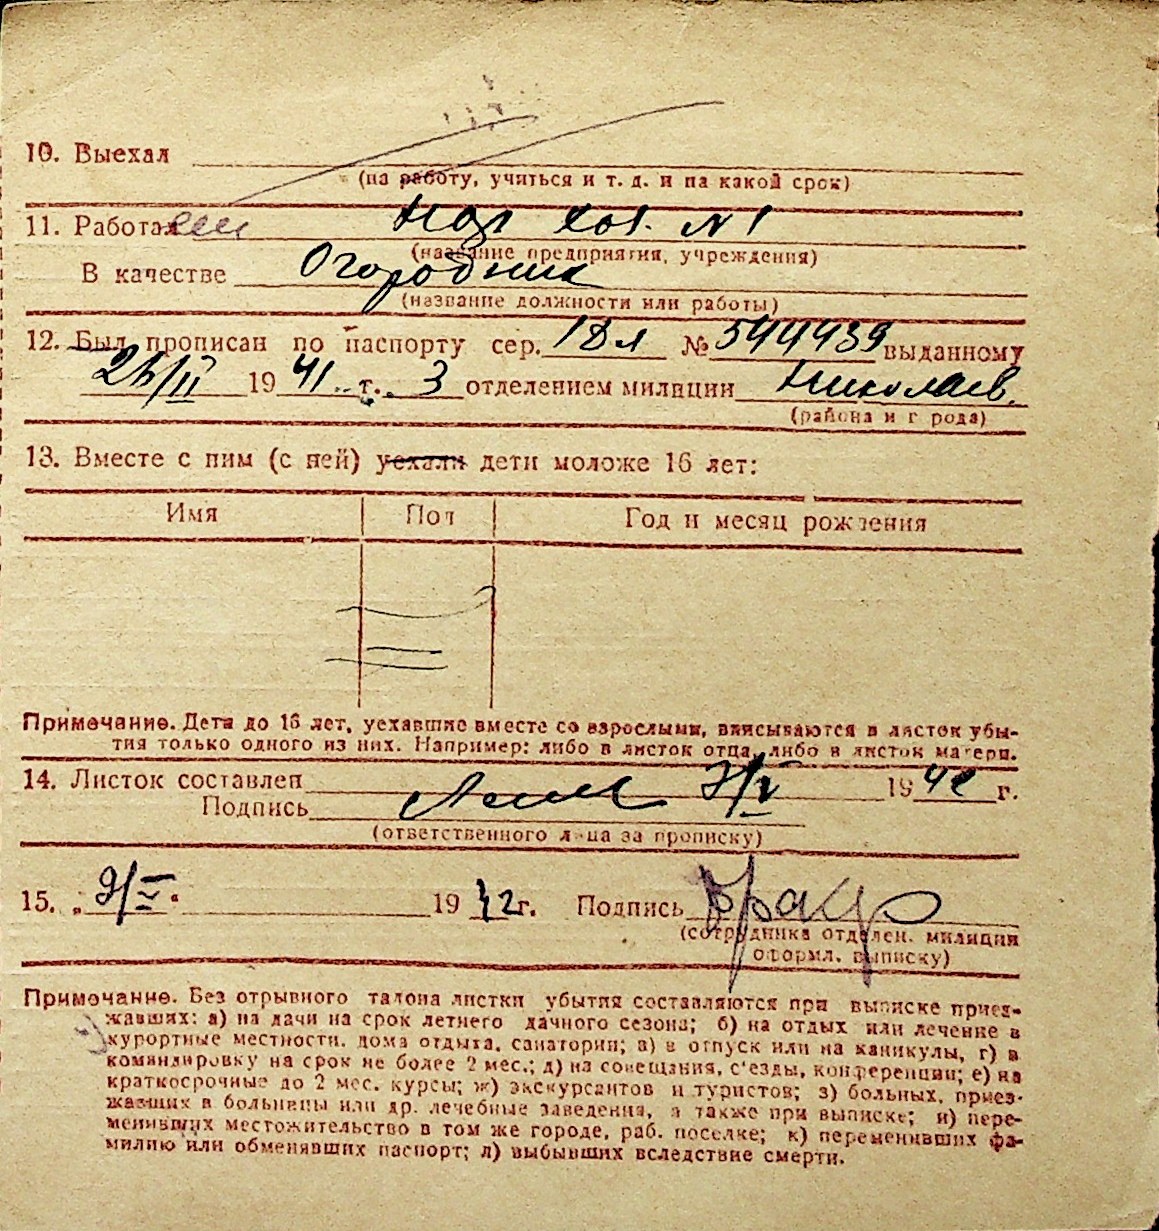 10. Выехал
(на работу, учиться и т. д. и на какой срок)
11. Работал
(название предприятия, учреждения)
В качестве Огородник
(название должности или работы)
12. Был прописан по паспорту сер. № 544439 выданному
1941 г. 3 отделением милиции Николаев.
(района и г рода)
13. Вместе с ним (с ней) уехали дети моложе 16 лет:
Имя Пол Год и месяц рождения
Примечание. Дети до 16 лет, уехавшие вместе со взрослыми, вписываются в листок убы-
тия только одного из них. Например: либо в листок отца, либо в листок матери.
14. Листок составлен 19 г.
Подпись
(ответственного лица за прописку)
15. „ 1942 г. Подпись
(сотрудника отделен. милиции
оформл. выписку)
Примечание. Без отрывного талона листки убытия составляются при выписке приез-
жавших: а) на дачи на срок летнего дачного сезона; б) на отдых или лечение в
курортные местности, дома отдыха, санатории; в) в отпуск или на каникулы, г) в
командировку на срок не более 2 мес.; д) на совещания, с'езды, конференции; е) на
краткосрочные до 2 мес. курсы; ж) экскурсантов и туристов; з) больных, приез-
жавших в больницы или др. лечебные заведения, а также при выписке; и) пере-
менивших местожительство в том же городе, раб. поселке; к) переменивших фа-
милию или обменявших паспорт; л) выбывших вследствие смерти.